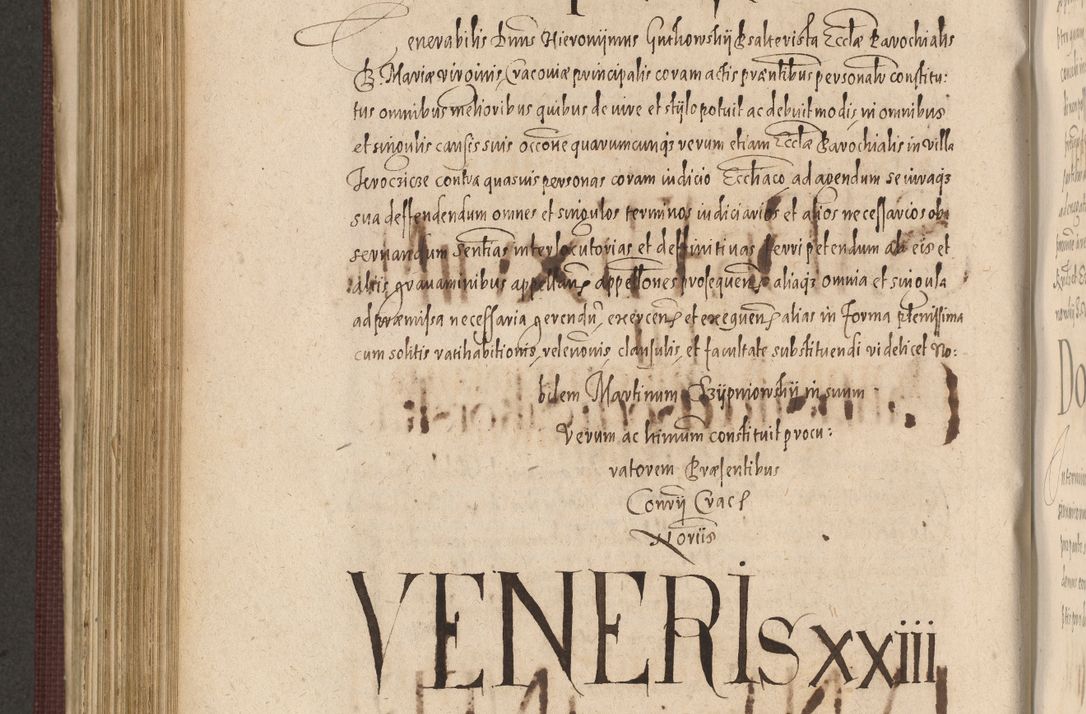 enerabilis Dnus Hieronijmus Guthowskij Psalterista Eccłæ Parochialis
B. Mariæ virginis Cracoviæ principalis coram actis præntibus personalr constitu:
tus omnibus melioribus quibus de iure et stijlo potuit ac debuit modis in omnibus
et singulis causis suis occōne quarumcunqȝ verum etiam Eccłæ Parochialis in villa
contra quasuis personas coram iudicio Ecclīaco ad agendum se iuraqȝ
sua deffendendum omnes et singulos terminos iudiciarios et alios necessarios ob:
seruandum Sententias interlocutorias et deffinitiuas ferri petendum ab eis et
aliis grauaminibus appellan appellōnes prosequen aliaqȝ omnia et singula
ad præmissa necessaria gerendū, exercen et exequen alias in forma plenissima
cum solitis ratihabitionis, releuōnis, clausulis, et facultate substituendi videlicet No:
bilem Martinum in suum
verum ac ltimum constituit procu:
ratorem Præsentibus
Conrij Crac
Noriis
VENERIS XXIII